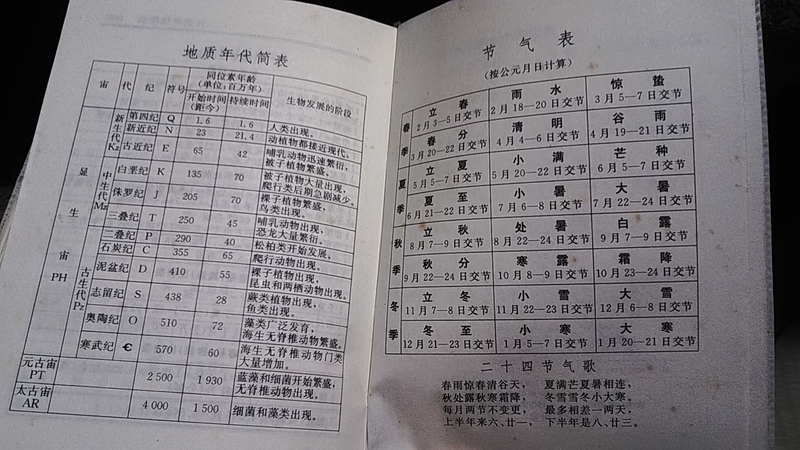 地质年代简表
宙 代 纪 符号 同位素年龄(单位:百万年) 生物发展的阶段
开始时间(距今) 持续时间
显生宙PH
新生代Kz 第四纪 Q 1.6 1.6 人类出现。
新近纪 N 23 21.4 动植物都接近现代。
古近纪 E 65 42 哺乳动物迅速繁衍,
被子植物繁盛。
中生代Mz 白垩纪 K 135 70 被子植物大量出现,
爬行类后期急剧减少。
侏罗纪 J 205 70 裸子植物繁盛,
鸟类出现。
三叠纪 T 250 45 哺乳动物出现,
恐龙大量繁衍。
古生代Pz 二叠纪 P 290 40 松柏类开始发展。
石炭纪 C 355 65 爬行动物出现。
泥盆纪 D 410 55 裸子植物出现,
昆虫和两栖动物出现。
志留纪 S 438 28 蕨类植物出现,
鱼类出现。
奥陶纪 O 510 72 藻类广泛发育,
海生无脊椎动物繁盛。
寒武纪 € 570 60 海生无脊椎动物门类
大量增加。
元古宙PT 2 500 1 930 蓝藻和细菌开始繁盛,
无脊椎动物出现。
太古宙AR 4 000 1 500 细菌和藻类出现。
节气表
(按公元月日计算)
春季 立春 雨水 惊蛰
2月3—5日交节 2月18—20日交节 3月5—7日交节
春分 清明 谷雨
3月20—22日交节 4月4—6日交节 4月19—21日交节
夏季 立夏 小满 芒种
5月5—7日交节 5月20—22日交节 6月5—7日交节
夏至 小暑 大暑
6月21—22日交节 7月6—8日交节 7月22—24日交节
秋季 立秋 处暑 白露
8月7—9日交节 8月22—24日交节 9月7—9日交节
秋分 寒露 霜降
9月22—24日交节 10月8—9日交节 10月23—24日交节
冬季 立冬 小雪 大雪
11月7—8日交节 11月22—23日交节 12月6—8日交节
冬至 小寒 大寒
12月21—23日交节 1月5—7日交节 1月20—21日交节
二十四节气歌
春雨惊春清谷天, 夏满芒夏暑相连,
秋处露秋寒霜降, 冬雪雪冬小大寒。
每月两节不变更, 最多相差一两天,
上半年来六、廿一, 下半年是八、廿三。